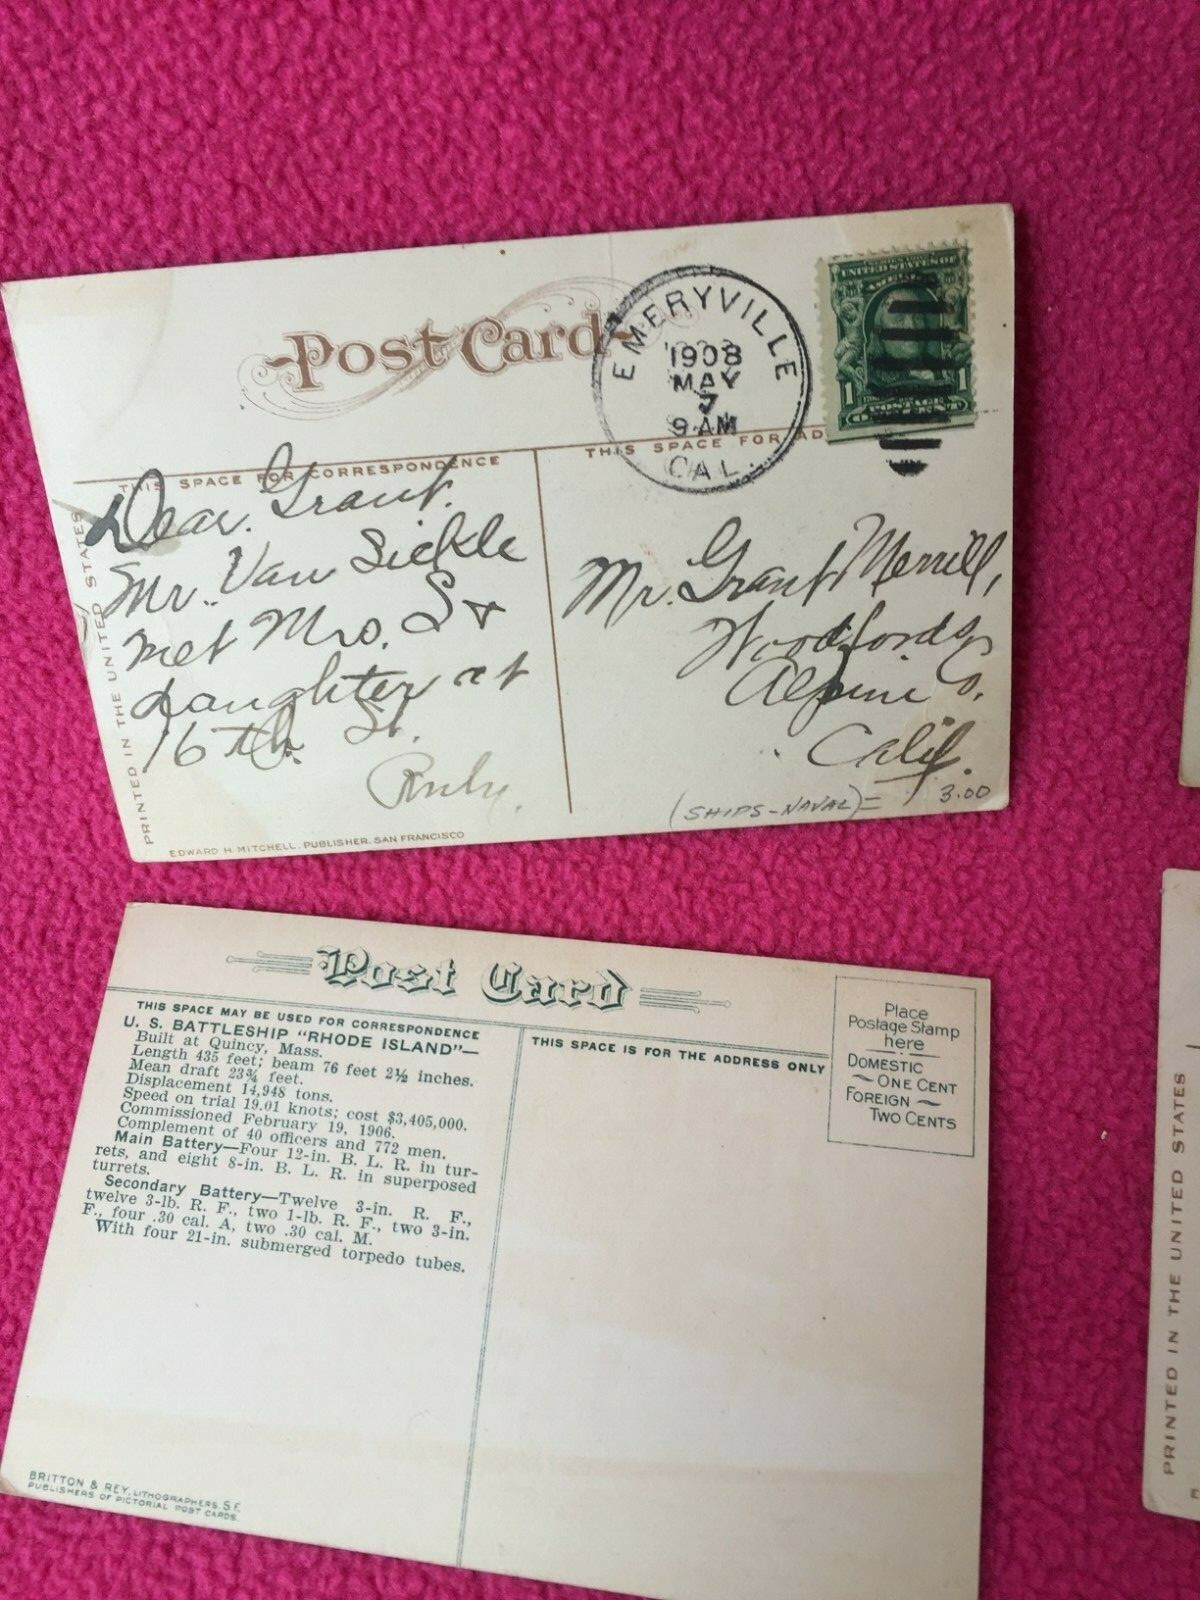 Post Card
EMERYVILLE
1908
MAY
7
9 AM
CAL.
UNITED STATES OF
AMERICA
1 1
POSTAGE
ONE CENT
THIS SPACE FOR CORRESPONDENCE
THIS SPACE FOR AD
PRINTED IN THE UNITED STATES
Dear. Grant.
Mr. Van Sickle
met Mrs. S &
daughter at
16 th. St.
Ruby.
Mr. Grant Merrill,
Woodfords
Alpine Co.
Calif.
(SHIPS-NAVAL)= 3.00
EDWARD H. MITCHELL, PUBLISHER, SAN FRANCISCO
Post Card
THIS SPACE MAY BE USED FOR CORRESPONDENCE
U. S. BATTLESHIP "RHODE ISLAND"—
Built at Quincy, Mass.
Length 435 feet; beam 76 feet 2½ inches.
Mean draft 23¾ feet.
Displacement 14,948 tons.
Speed on trial 19.01 knots; cost $3,405,000.
Commissioned February 19, 1906.
Complement of 40 officers and 772 men.
Main Battery—Four 12-in. B. L. R. in tur-
rets, and eight 8-in. B. L. R. in superposed
turrets.
Secondary Battery—Twelve 3-in. R. F.,
twelve 3-lb. R. F., two 1-lb. R. F., two 3-in.
F., four .30 cal. A, two .30 cal. M.
With four 21-in. submerged torpedo tubes.
THIS SPACE IS FOR THE ADDRESS ONLY
Place
Postage Stamp
here
DOMESTIC
ONE CENT
FOREIGN
TWO CENTS
BRITTON & REY, LITHOGRAPHERS, S.F.
PUBLISHERS OF PICTORIAL POST CARDS.
PRINTED IN THE UNITED STATES